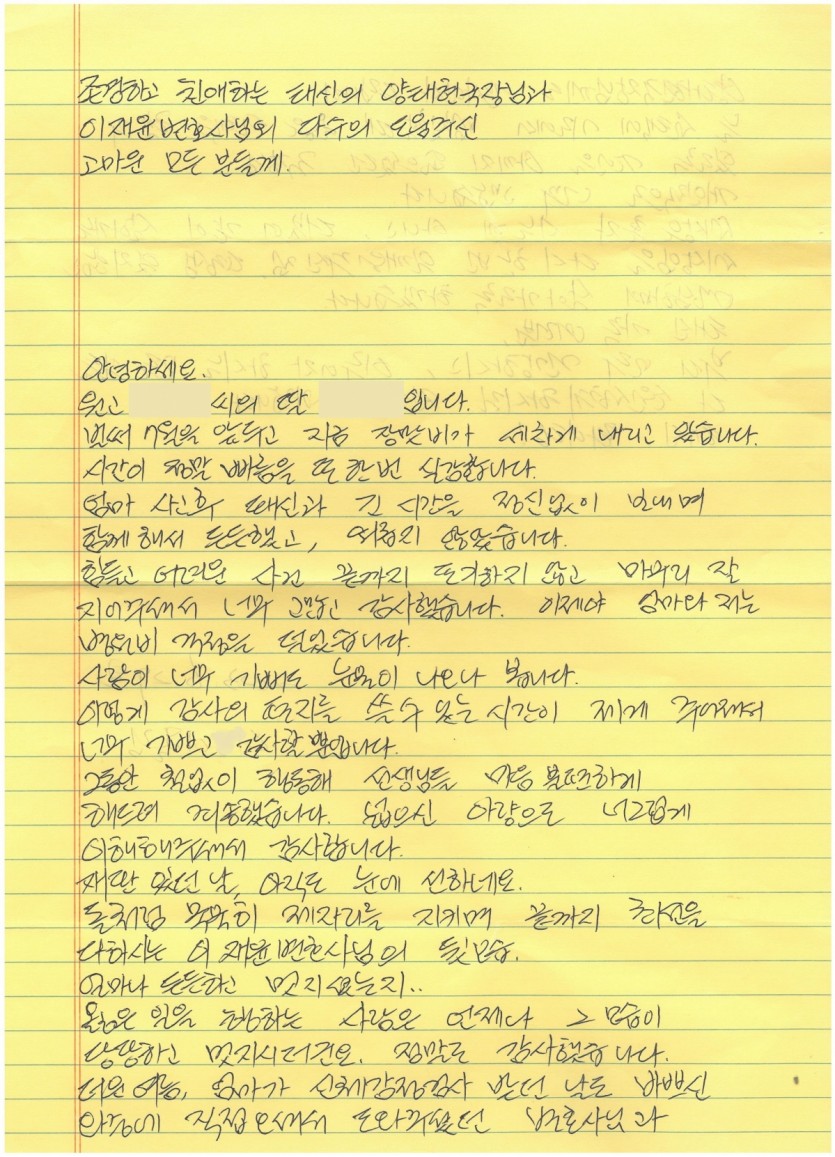 존경하고 친애하는 태신의 양태현국장님과
이재윤변호사님외 다수의 도움주신
고마운 모든 분들께.
안녕하세요.
원고 씨의 딸 입니다.
벌써 7월을 앞두고 지금 장맛비가 세차게 내리고 있습니다.
시간이 정말 빠름을 또 한번 실감합니다.
엄마 사건후 태신과 긴 시간을 정신없이 보내며
함께 해서 든든했고, 외롭지 않았습니다.
힘들고 어려운 사건 끝까지 포기하지 않고 마무리 잘
지어주셔서 너무 고맙고 감사했습니다. 이제야 엄마와 저는
병원비 걱정을 덜었습니다.
사람이 너무 기뻐도 눈물이 나오나 봅니다.
이렇게 감사의 편지를 쓸 수 있는 시간이 제게 주어져서
너무 기쁘고 감사할 뿐입니다.
그동안 철없이 행동해 선생님들 마음 불편하게
해드려 죄송했습니다. 넓으신 아량으로 너그럽게
이해해주셔서 감사합니다.
재판 있던 날, 아직도 눈에 선하네요.
돌처럼 묵묵히 제자리를 지키며 끝까지 최선을
다하시는 이재윤변호사님의 뒷모습.
얼마나 든든하고 멋지셨는지..
옳은 일을 행하는 사람은 언제나 그 모습이
당당하고 멋지시더군요. 정말로 감사했습니다.
더운 여름, 엄마가 신체감정검사 받던 날도 바쁘신
와중에 직접 오셔서 도와주셨던 변호사님과